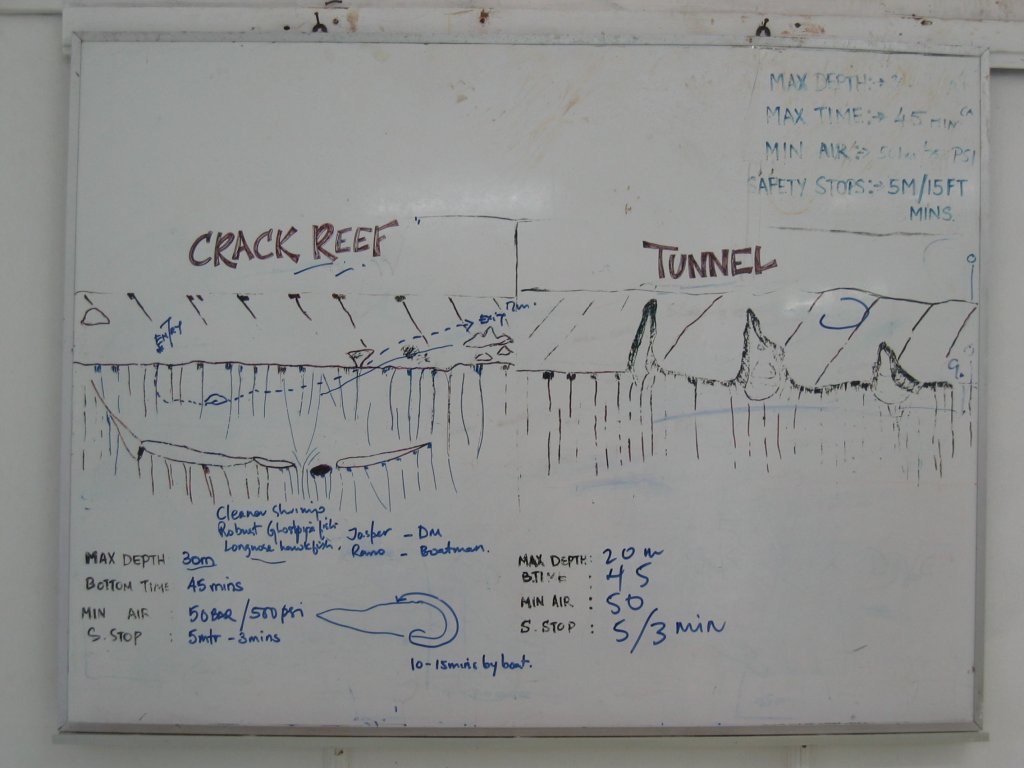 MAX DEPTH:→
MAX TIME:→ 45 MIN
MIN AIR:→ PSI
SAFETY STOPS:→ 5M/15FT
MINS.
CRACK REEF
TUNNEL
ENTRY
EXIT
12m.
9.
Cleaner Shrimp
Robust Ghostpipefish
Longnose hawkfish.
Jasper - DM
Romo - Boatman.
MAX DEPTH 30m
BOTTOM TIME 45 mins
MIN AIR : 50BAR/500psi
S.STOP : 5mtr - 3mins
10-15mins by boat.
MAX DEPTH: 20m
B.TIME : 45
MIN AIR : 50
S.STOP : 5/3 MIN